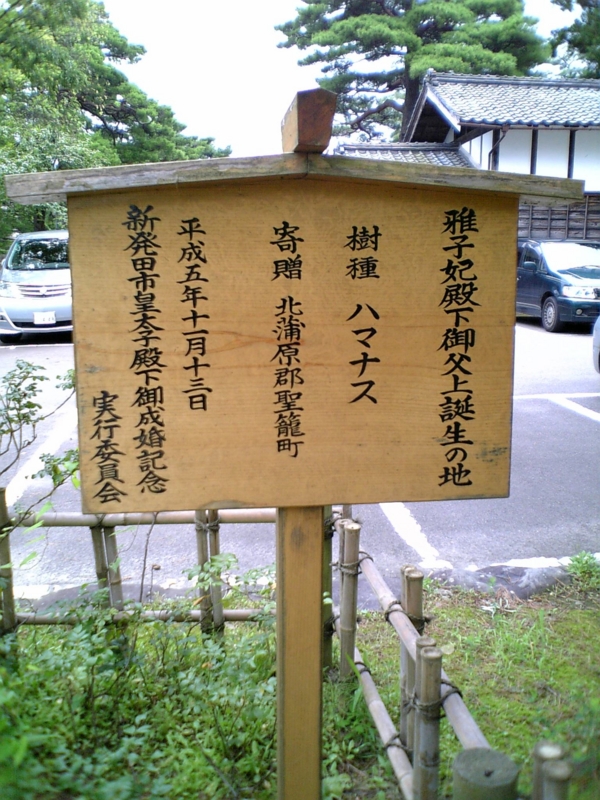 雅子妃殿下御父上誕生の地
樹種 ハマナス
寄贈 北蒲原郡聖籠町
平成五年十一月十三日
新発田市皇太子殿下御成婚記念
実行委員会